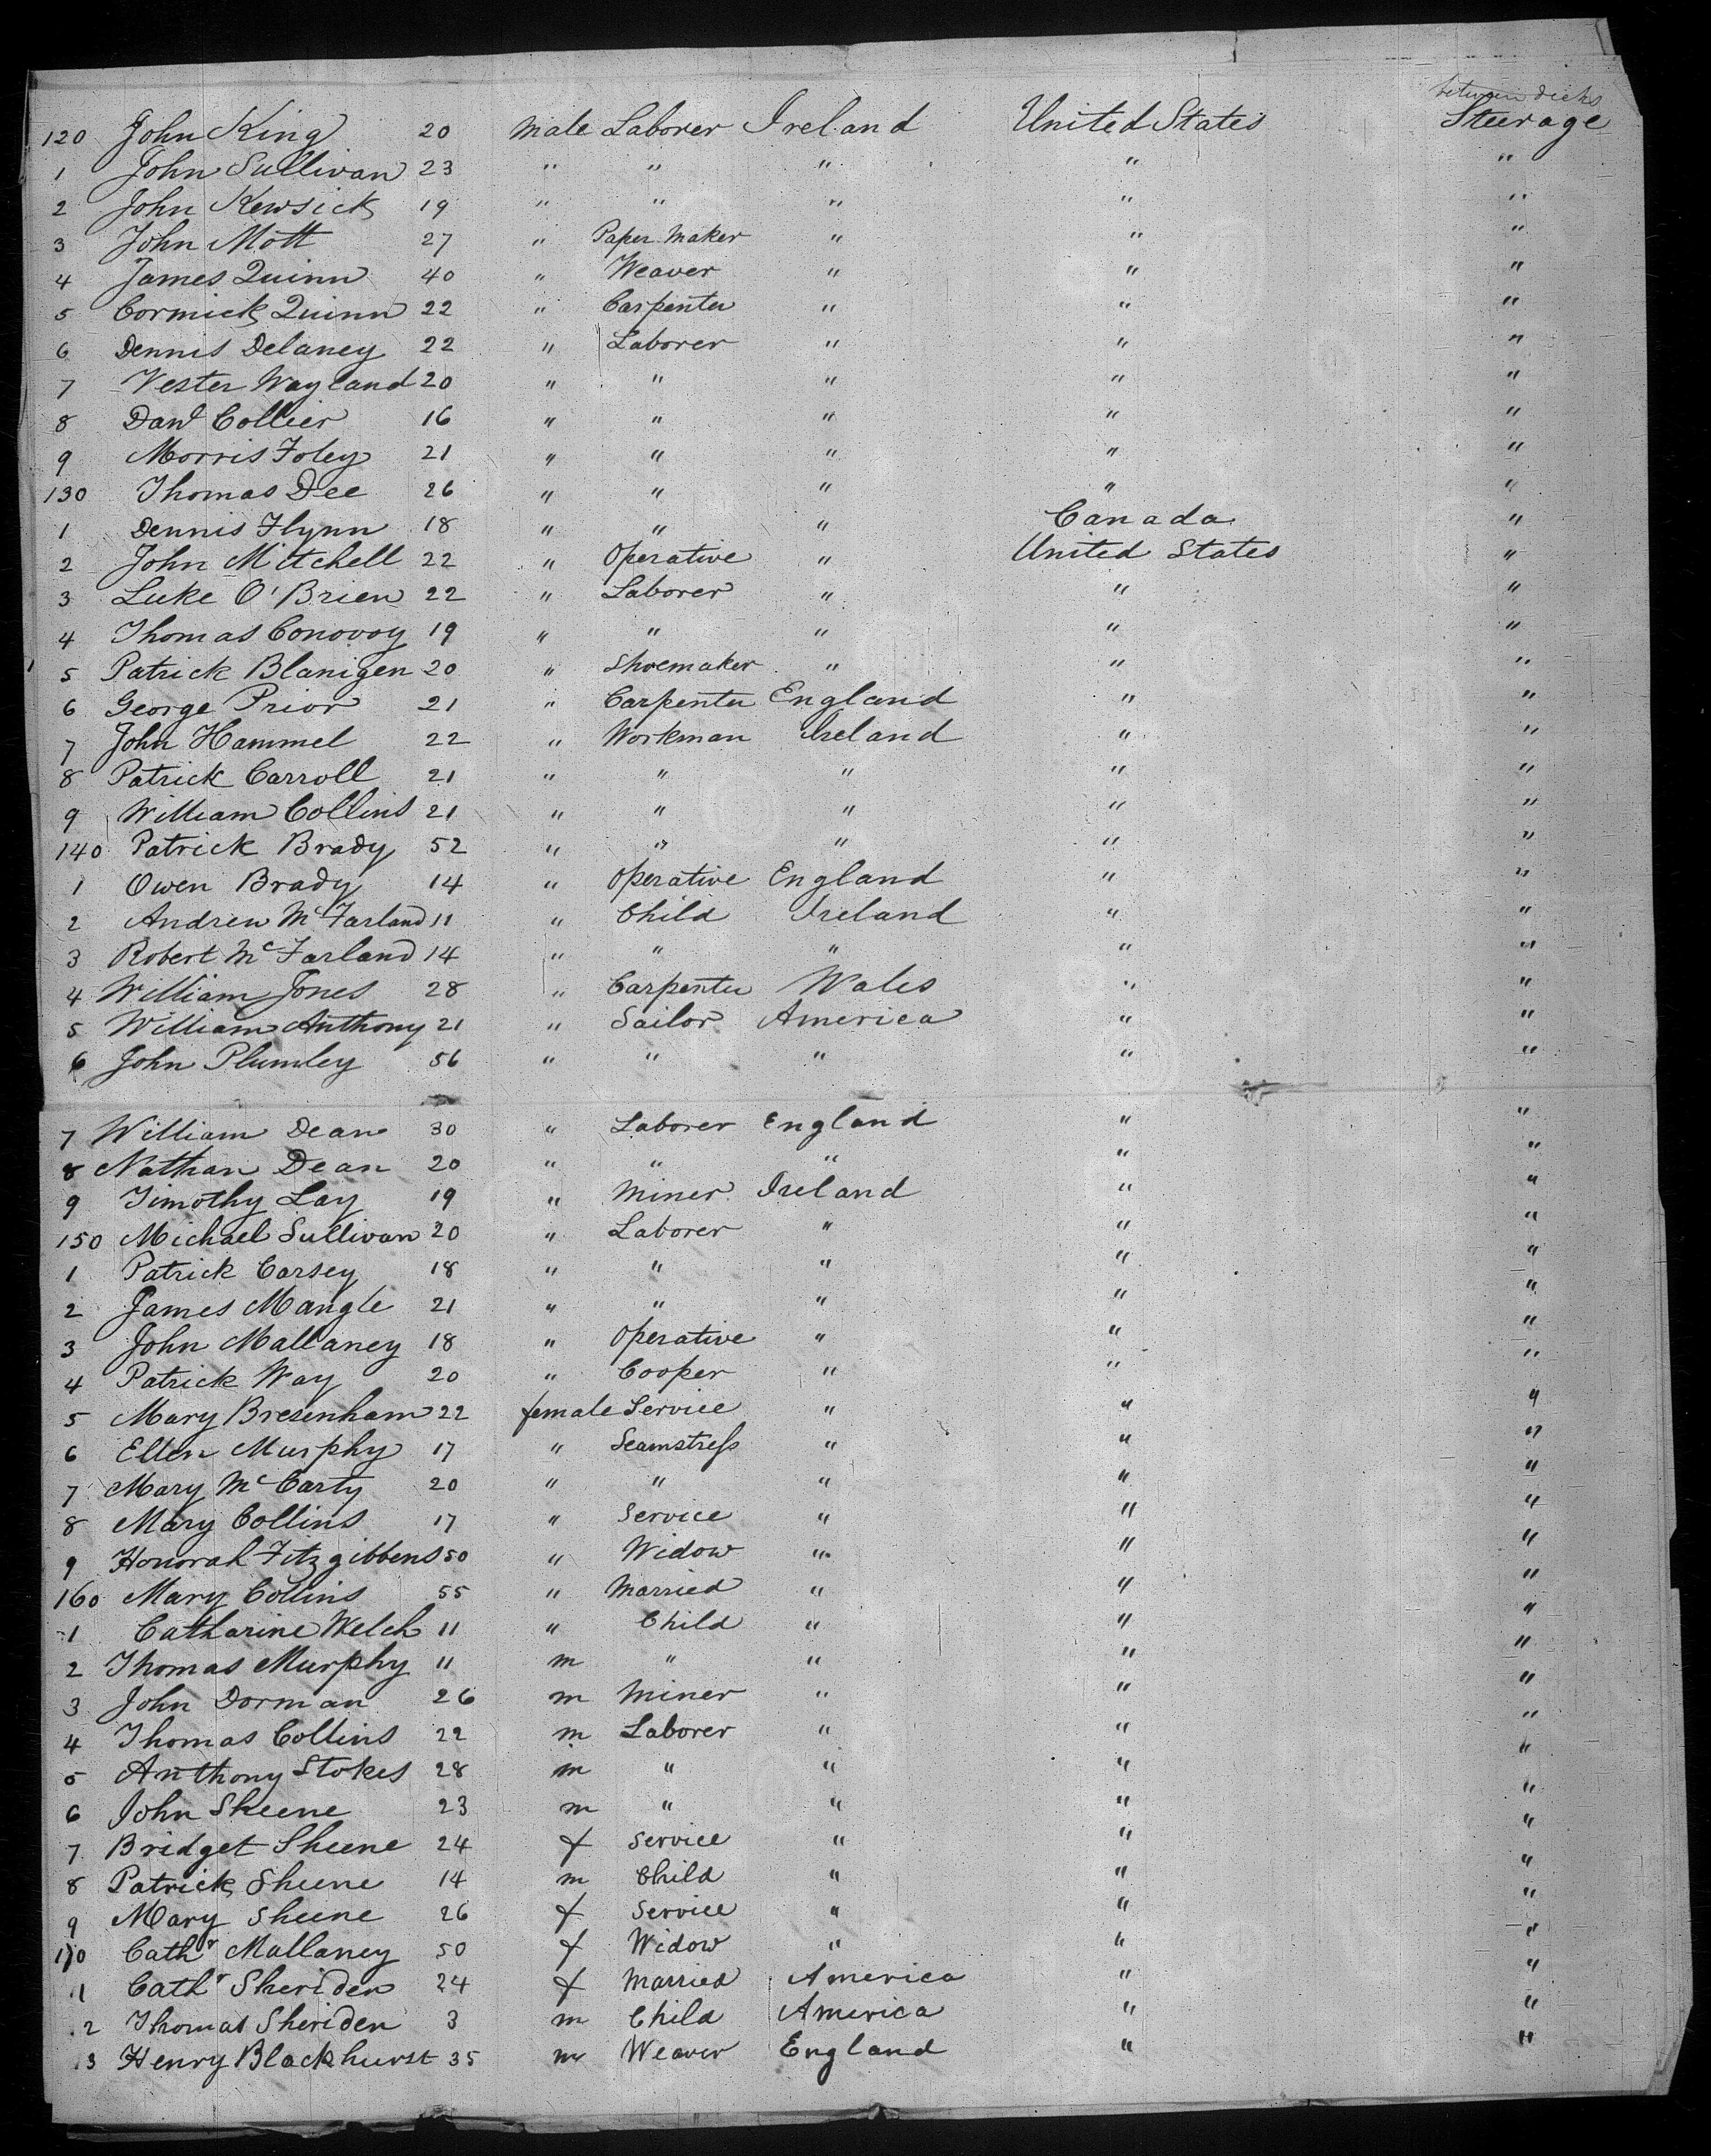 between decks
120 John King 20 male Laborer Ireland United States Steerage
1 John Sullivan 23 " " " " "
2 John Kewsick 19 " " " " "
3 John Mott 27 " Paper Maker " " "
4 James Quinn 40 " Weaver " " "
5 Cormick Quinn 22 " Carpenter " " "
6 Dennis Delaney 22 " Laborer " " "
7 Vester Wayland 20 " " " " "
8 Danl Collier 16 " " " " "
9 Morris Foley 21 " " " " "
130 Thomas Dee 26 " " " " "
1 Dennis Flynn 18 " " " Canada "
2 John Mitchell 22 " Operative " United States "
3 Luke O'Brien 22 " Laborer " " "
4 Thomas Conovoy 19 " " " " "
5 Patrick Blanigen 20 " Shoemaker " " "
6 George Prior 21 " Carpenter England " "
7 John Hammel 22 " Workman Ireland " "
8 Patrick Carroll 21 " " " " "
9 William Collins 21 " " " " "
140 Patrick Brady 52 " " " " "
1 Owen Brady 14 " Operative England " "
2 Andrew McFarland 11 " Child Ireland " "
3 Robert McFarland 14 " " " " "
4 William Jones 28 " Carpenter Wales " "
5 William Anthony 21 " Sailor America " "
6 John Plumley 56 " " " " "
7 William Dean 30 " Laborer England " "
8 Nathan Dean 20 " " " " "
9 Timothy Lay 19 " Miner Ireland " "
150 Michael Sullivan 20 " Laborer " " "
1 Patrick Carsey 18 " " " " "
2 James Mangle 21 " " " " "
3 John Mallaney 18 " Operative " " "
4 Patrick Way 20 " Cooper " " "
5 Mary Bresenham 22 female Service " " "
6 Ellen Murphy 17 " Seamstress " " "
7 Mary McCarty 20 " " " " "
8 Mary Collins 17 " Service " " "
9 Honorah Fitzgibbens 50 " Widow " " "
160 Mary Collins 55 " Married " " "
1 Catharine Welch 11 " Child " " "
2 Thomas Murphy 11 m " " " "
3 John Dorman 26 m Miner " " "
4 Thomas Collins 22 m Laborer " " "
5 Anthony Stokes 28 m " " " "
6 John Sheene 23 m " " " "
7 Bridget Sheene 24 f Service " " "
8 Patrick Sheene 14 m Child " " "
9 Mary Sheene 26 f Service " " "
170 Cathr Mallaney 50 f Widow " " "
1 Cathr Sheriden 24 f Married America " "
2 Thomas Sheriden 3 m Child America " "
3 Henry Blackhurst 35 m Weaver England " "